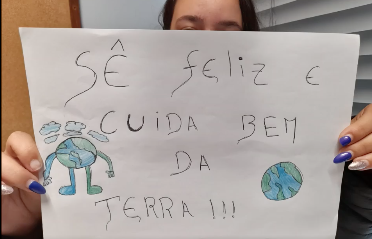 SÊ feliz E
CUIDA BEM
DA
TERRA!!!